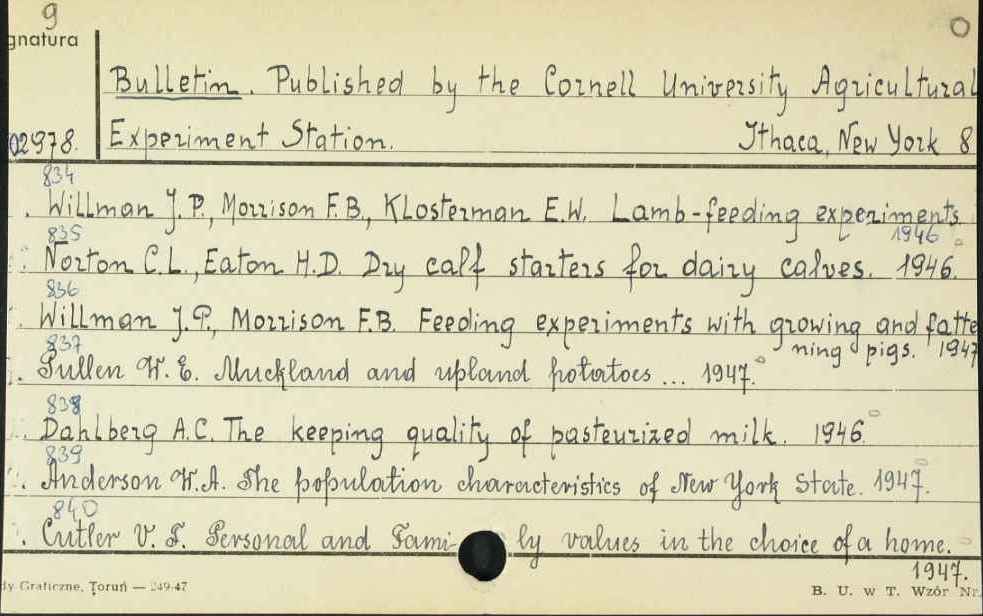 9
gnatura
Bulletin. Published by the Cornell University Agricultural
02978. Experiment Station. Ithaca, New York 8
834
Willman J.P., Morrison F.B., Klosterman E.W. Lamb-feeding experiments
835 1946
Norton C.L., Eaton H.D. Dry calf starters for dairy calves. 1946.
836
Willman J.P., Morrison F.B. Feeding experiments with growing and fatte
837 ning pigs. 1947
Pullen W.E. Muckland and upland potatoes ... 1947.
838
Dahlberg A.C. The keeping quality of pasteurized milk. 1946
839
Anderson W.A. The population characteristics of New York State. 1947.
840
Cutler V.F. Personal and Fami- ly values in the choice of a home.
1947.
dy Graficzne, Toruń — 249-47 B. U. w T. Wzór Nr.